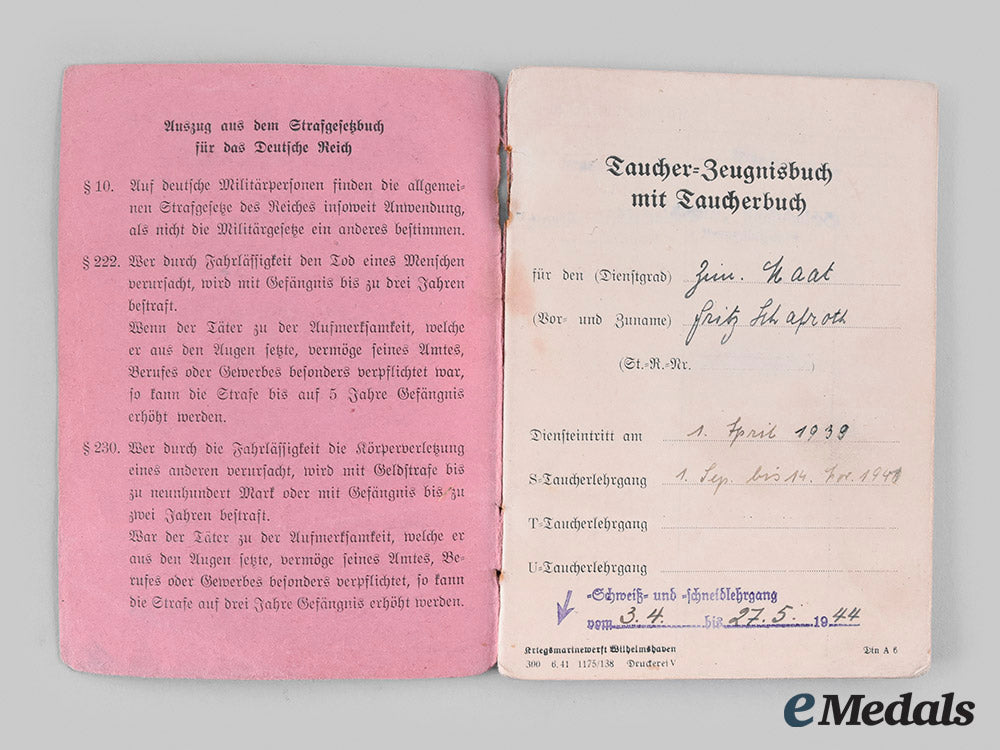 Auszug aus dem Strafgesetzbuch
für das Deutsche Reich
§ 10. Auf deutsche Militärpersonen finden die allgemei-
nen Strafgesetze des Reiches insoweit Anwendung,
als nicht die Militärgesetze ein anderes bestimmen.
§ 222. Wer durch Fahrlässigkeit den Tod eines Menschen
verursacht, wird mit Gefängnis bis zu drei Jahren
bestraft.
Wenn der Täter zu der Aufmerksamkeit, welche
er aus den Augen setzte, vermöge seines Amtes,
Berufes oder Gewerbes besonders verpflichtet war,
so kann die Strafe bis auf 5 Jahre Gefängnis
erhöht werden.
§ 230. Wer durch die Fahrlässigkeit die Körperverletzung
eines anderen verursacht, wird mit Geldstrafe bis
zu neunhundert Mark oder mit Gefängnis bis zu
zwei Jahren bestraft.
War der Täter zu der Aufmerksamkeit, welche er
aus den Augen setzte, vermöge seines Amtes, Be-
rufes oder Gewerbes besonders verpflichtet, so kann
die Strafe auf drei Jahre Gefängnis erhöht werden.
Taucher-Zeugnisbuch
mit Taucherbuch
für den (Dienstgrad) Zim. Maat
(Vor- und Zuname) Fritz Schafroth
(St.-R.-Nr. )
Diensteintritt am 1. April 1939
S-Taucherlehrgang 1. Sep. bis 14. Nov. 1941
T-Taucherlehrgang
U-Taucherlehrgang
-Schweiß- und -schneidlehrgang
vom 3.4. bis 27.5. 1944
Kriegsmarinewerft Wilhelmshaven Din A 6
300 6.41 1175/138 Druckerei V
eMedals